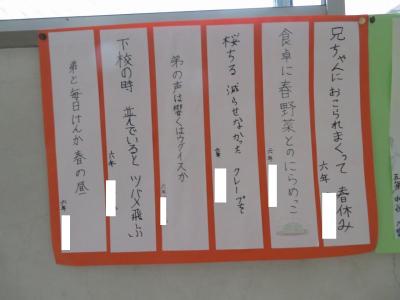 兄ちゃんにおこられまくって 春休み
六年
食卓に春野菜とのにらめっこ
六年
桜ちる 減らせなかった クレープを
六年
弟の声は響くはウグイスか
六年
下校の時 並んでいると ツバメ飛ぶ
六年
弟と毎日けんか春の昼
六年